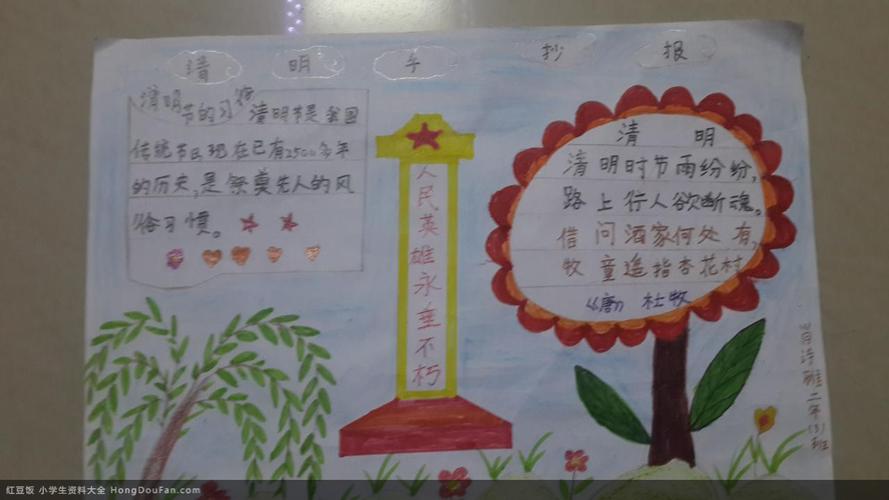 清 明 手 抄 报
清明节的习俗
清明节是我国
传统节日,现在已有2500多年
的历史,是祭奠先人的风
俗习惯。
人民英雄永垂不朽
清 明
清明时节雨纷纷,
路上行人欲断魂。
借问酒家何处有,
牧童遥指杏花村
《唐》 杜牧
诗雅二年(3)班
红豆饭 小学生资料大全 HongDouFan.com